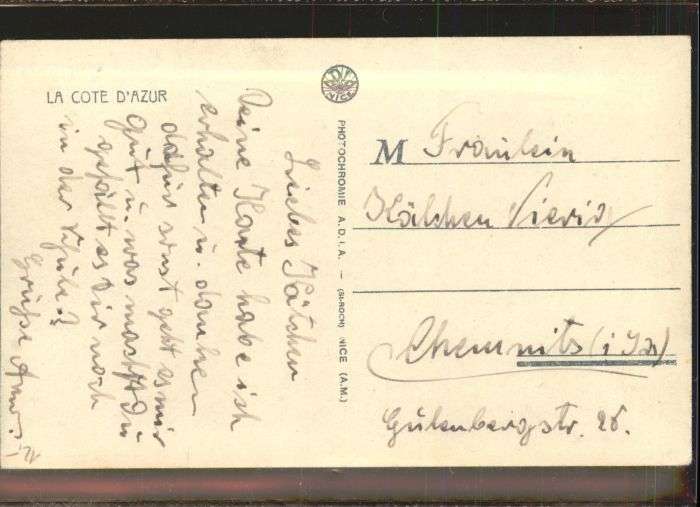 LA COTE D'AZUR
Liebes Kätchen
Deine Karte habe ich
erhalten u. danke
dafür sonst geht es mir
gut u. was machst Du
gefällt es Dir noch
in der Schule?
Grüße
NICE
PHOTOCHROMIE A.D.I.A. – (St-ROCH) NICE (A.M.)
M Fräulein
Kätchen
Chemnitz (i Sa)
Gutenbergstr. 26.